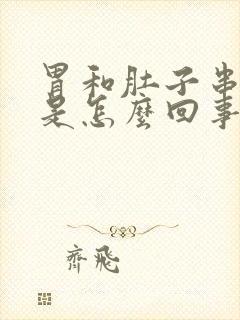 胃和肚子串
是怎麽回事
齊飛